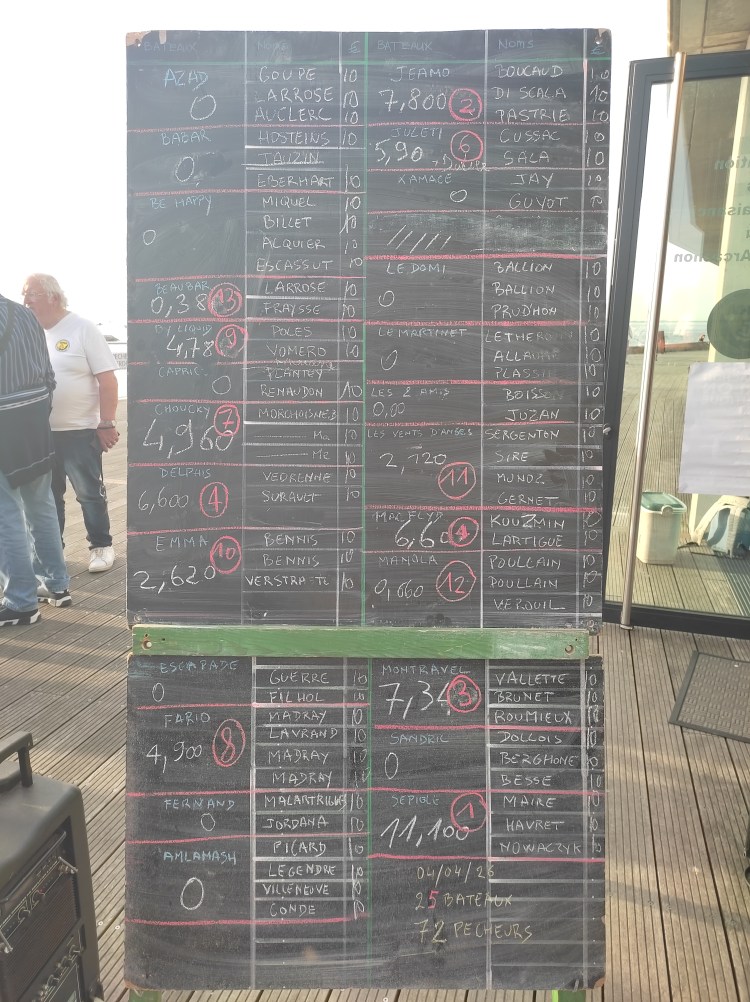 BATEAUX NOMS €
AZAD GOUPE 10
0 LARROSE 10
AUCLERC 10
BABAR HOSTEINS 10
0 TAUZIN
EBERHART 10
BE HAPPY MIQUEL 10
0 BILLET 10
ALQUIER 10
ESCASSUT 10
BEAUBAR LARROSE 10
0,38 13 FRAYSSE 10
DJ LIQUID POLES 10
4,78 9 VOMERO 10
CAPRIC. PLANTEY
0 RENAUDON 10
CHOUCKY 7 MORCHOISNES 10
4,960 Ma 10
Me 10
DELPHIS VEDRENNE 10
6,600 4 SURAULT 10
EMMA 10 BENNIS 10
BENNIS 10
2,620 VERSTRAETE 10
BATEAUX NOMS €
JEAMO BOUCAUD 10
7,800 2 DI SCALA 10
PASTRIE 10
JULETI 6 CUSSAC 10
5,90 SALA 10
KAMACE JAY 10
0 GUYOT 10
LE DAMI BALLION 10
0 BALLION 10
PRUD'HON 10
LE MARTINET
0
LES 2 AMIS BOISSON 10
0,00 JUZAN 10
LES VENTS D'ANGES SERGENTON 10
2,720 SIRE 10
11 MUNOZ 10
GERNET 10
MAC FLYD KOUZMIN 10
6,60 4 LARTIGUE 10
MANOLA POULLAIN 10
0,660 12 POULLAIN 10
VEROUIL 10
ESCAPADE GUERRE 10
0 FILHOL 10
FARIO MADRAY 10
LAVRAND 10
4,900 8 MADRAY 10
MADRAY 10
FERNAND
0 JORDANA 10
PICARD 10
AMLAMASH LEGENDRE 10
0 VILLENEUVE 10
CONDE 10
MONTRAVEL VALLETTE 10
7,34 3 BRUNET 10
ROUMIEUX 10
SANDRIC DOLLOIS 10
0 BERGHONE 10
BESSE 10
SEPIOLE 1 MAIRE 10
11,100 HAVRET 10
NOWACZYK 10
04/04/26
25 BATEAUX
72 PECHEURS